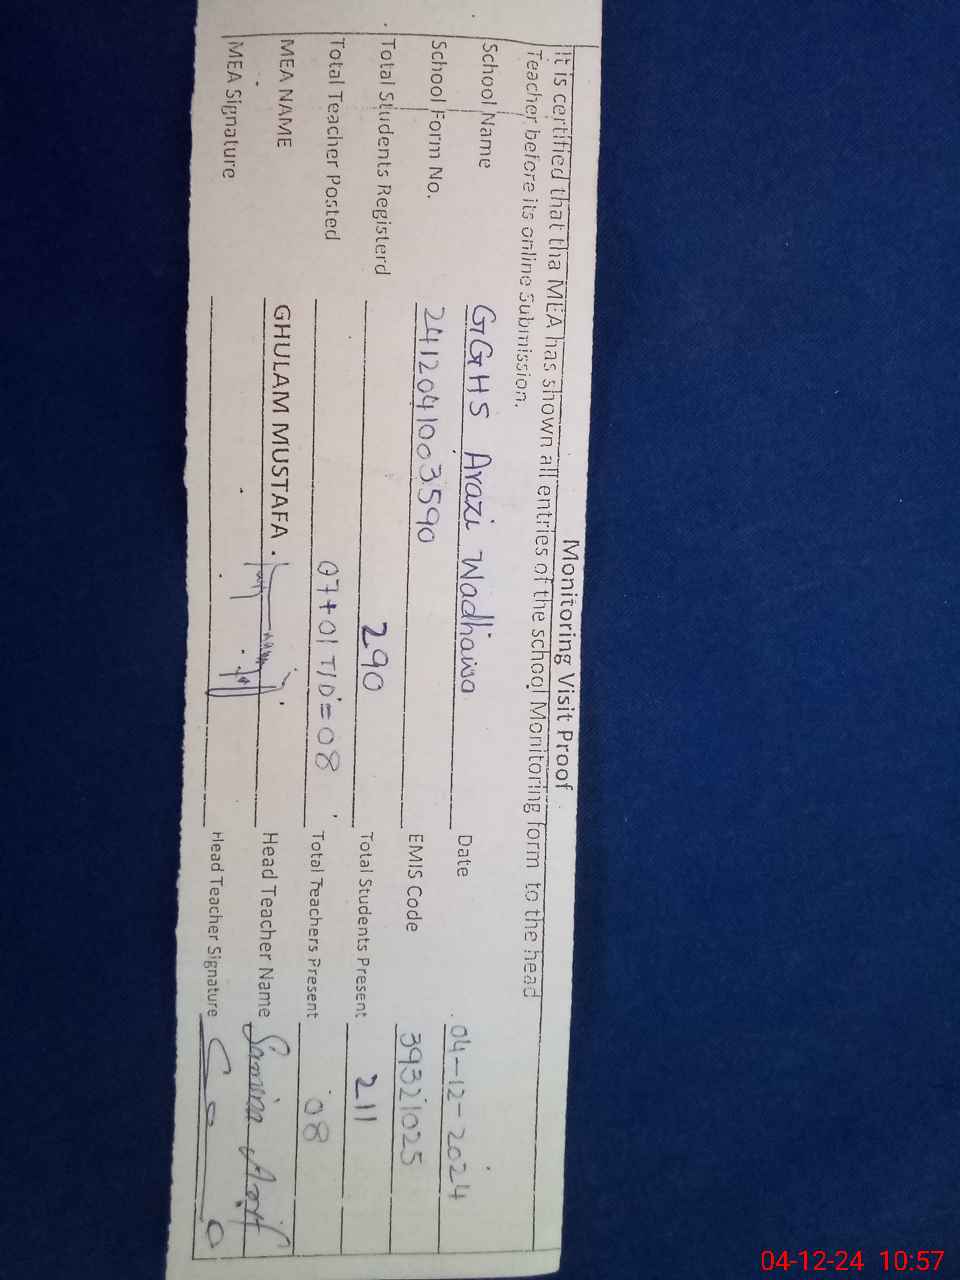 Monitoring Visit Proof
It is certified that tha MEA has shown all entries of the school Monitoring form to the head
Teacher before its online Submission.
School Name GGHS Arazi Wadhaiwa Date 04-12-2024
School Form No. 2412041003590 EMIS Code 39321025
Total Students Registerd 290 Total Students Present 211
Total Teacher Posted 07+01 T/D=08 Total Teachers Present 08
MEA NAME GHULAM MUSTAFA Head Teacher Name Samina
MEA Signature Head Teacher Signature
04-12-24 10:57